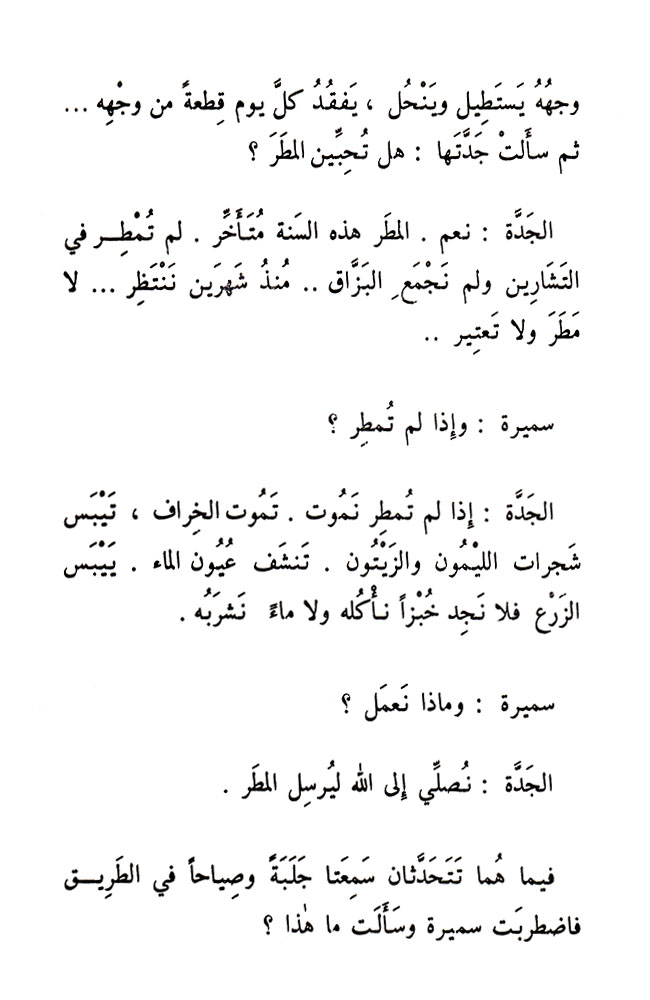 وجهُهُ يَستَطِيل ويَنْحُل ، يَفقُدُ كلَّ يوم قِطعةً من وجْهِه ...
ثم سأَلتْ جَدَّتَها : هل تُحِبِّين المطَرَ ؟
الجَدَّة : نعم . المطَر هذه السَنة مُتَأَخِّر . لم تُمْطِر في
التَشَارِين ولم نَجْمَعِ البَزَّاق .. مُنذُ شَهرَين نَنْتَظِر ... لا
مَطَرَ ولا تَعتِير ..
سميرة : وإِذا لم تُمطِر ؟
الجَدَّة : إِذا لم تُمطِر نَمُوت . تَمُوت الخِراف ، تَيْبَس
شَجرات الليْمُون والزَيْتُون . تَنشَف عُيُون الماء . يَيْبَس
الزَرْع فلا نَجِد خُبْزاً نأْكُله ولا ماءً نَشرَبُه .
سميرة : وماذا نَعمَل ؟
الجَدَّة : نُصلِّي إِلى الله ليُرسِل المطَر .
فيما هُما تَتَحَدَّثان سَمِعَتا جَلَبَةً وصِياحاً في الطَرِيق
فاضطربَت سميرة وسَأَلَت ما هٰذا ؟